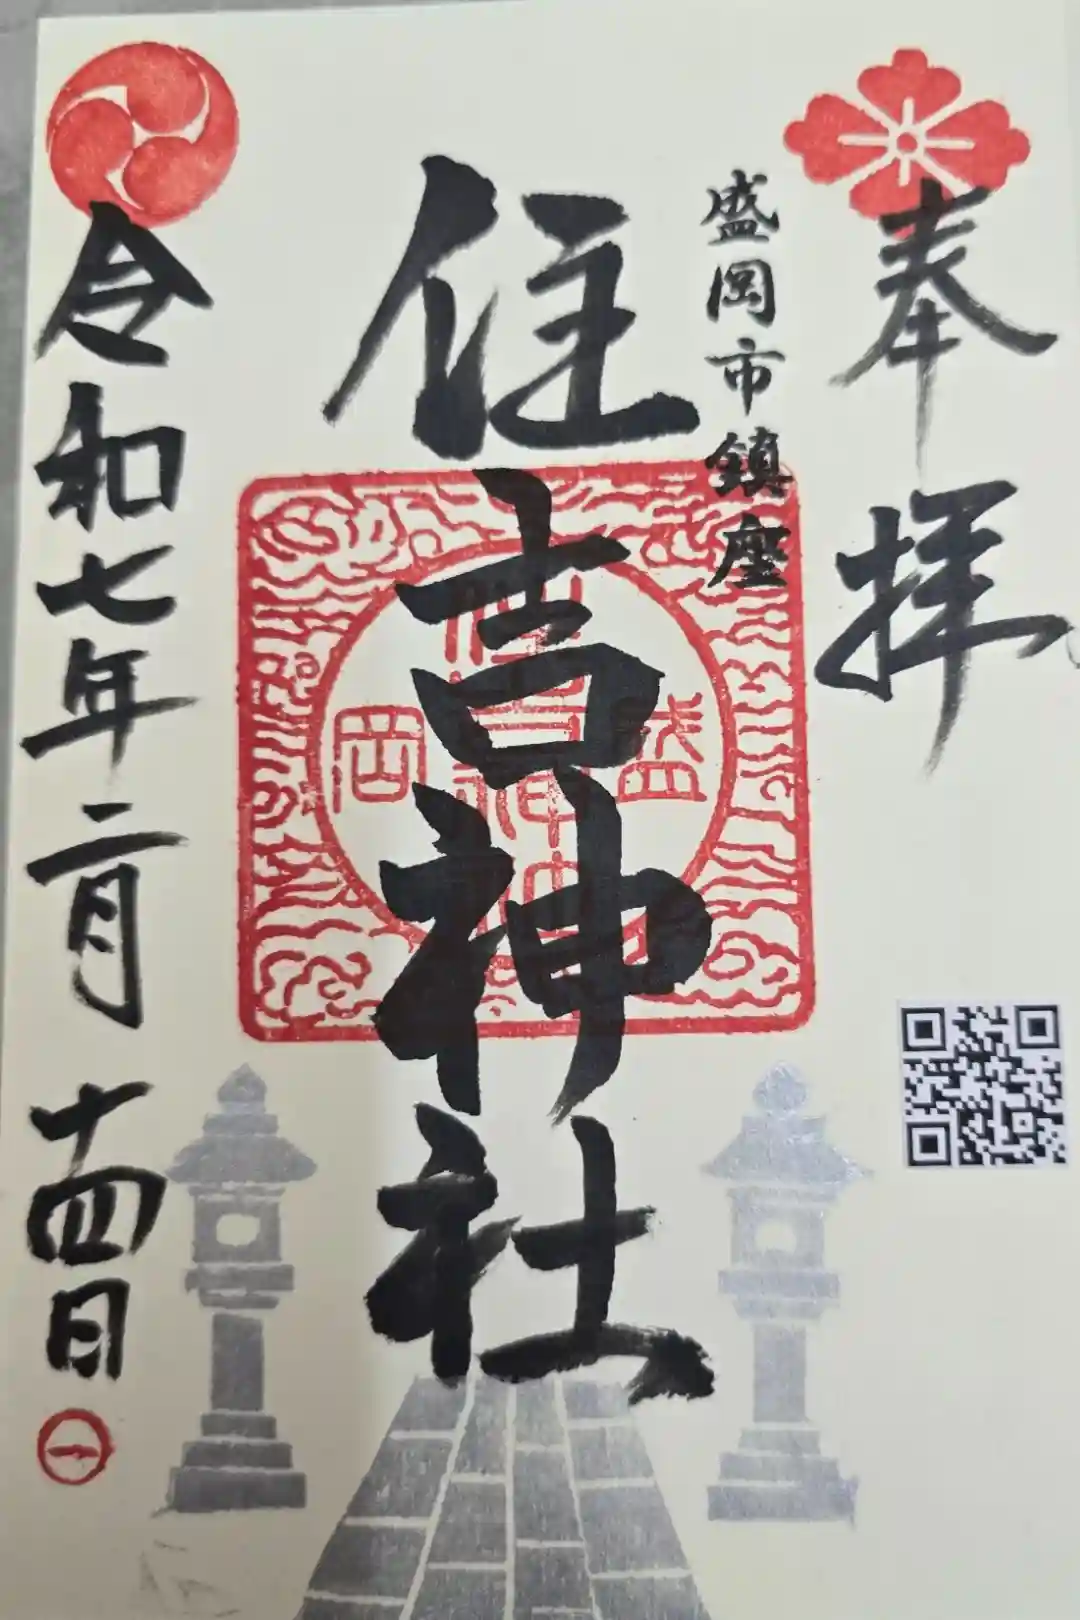 奉拝
盛岡市鎮座
住吉神社
盛岡
住吉神社
令和七年二月十四日
一